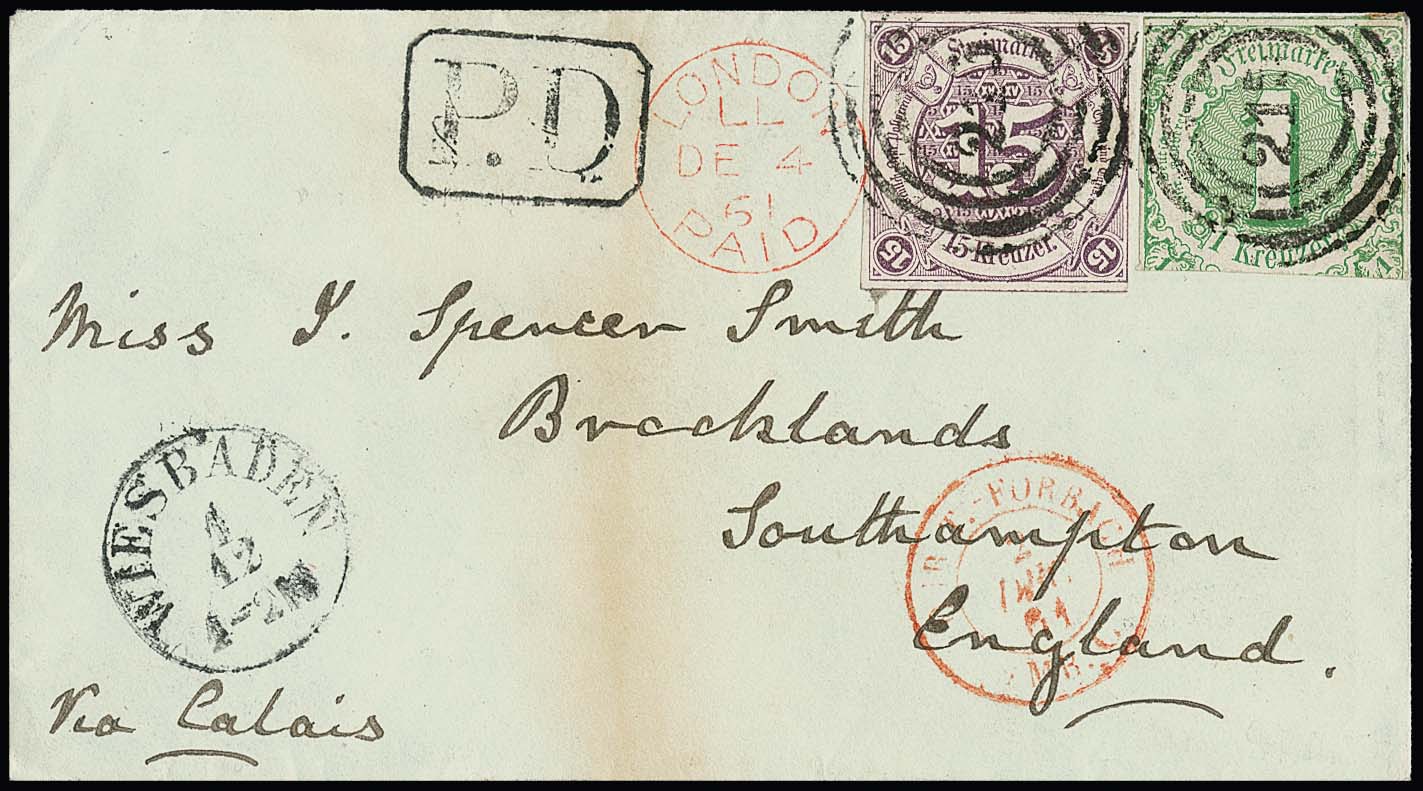 P.D
LONDON
LL
DE 4
61
PAID
15
Freimarke
15
15
15 Kreuzer.
15
15
Freimarke
1
1 Kreuzer
1
Miss J. Spencer Smith
Brocklands
Southampton
England.
WIESBADEN
4
12
1-2N
FORBACH
Via Calais